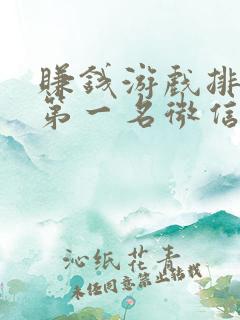 赚钱游戏排
第一名微信
沁纸花青
未经同意禁止转载